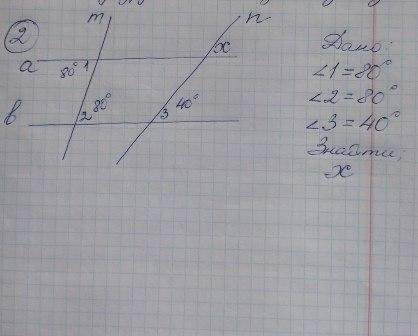 2
m
n
a
80° 1
x
b
2 80°
3 40°
Дано:
∠1=80°
∠2=80°
∠3=40°
Знайти;
x